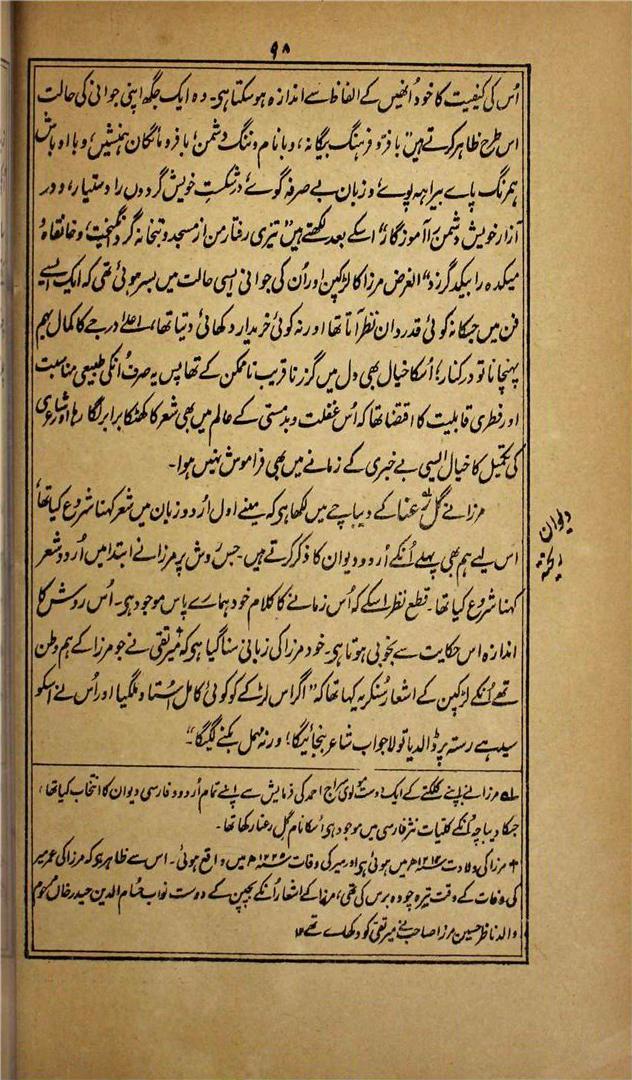 ۹۸
اُس کی کیفیت کا خود اُنھیں کے الفاظ سے اندازہ ہوسکتا ہی۔ وہ ایک جگہ اپنی جوانی کی حالت
اس طرح ظاہر کرتے ہیں "با فرّ و فرہنگ بیگانہ، و با نام و ننگ دشمن؛ با فرومائگان ہمنشیں، و با اوباش
ہمرنگ پاے بیراہہ پوے، و زبان بے صرفہ گوے؛ در شکستِ خویش گردوں را دستیار، و در
آزارِ خویش دشمن را آموزگار" اسکے بعد لکھتے ہیں "تیزی رفتار من از مسجد و بتخانہ گرد انگیخت، و خانقاہ و
میکدہ را بیکدگر زد" الغرض مرزا کا لڑکپن اور اُن کی جوانی ایسی حالت میں بسر ہوئی تھی کہ ایک ایسے
فن میں جسکا نہ کوئی قدردان نظر آتا تھا اور نہ کوئی خریدار دکھائی دیتا تھا، اعلےٰ درجے کا کمال بہم
پہنچانا تو درکنار؛ اُسکا خیال بھی دل میں گزرنا قریب ناممکن کے تھا پس یہ صرف اُنکی طبیعی مناسبت
اور فطری قابلیت کا اقتضا تھا کہ اُس غفلت و بدمستی کے عالم میں بھی شعر کا کھٹکا برابر لگا رہا اور شاعری
کی تکمیل کا خیال ایسی بے خبری کے زمانے میں بھی فراموش نہیں ہوا۔
مرزا نے گل رعنا کے دیباچے میں لکھا ہی کہ مینے اول اُردو زبان میں شعر کہنا شروع کیا تھا،
اس لیے ہم بھی پہلے اُنکے اُردو دیوان کا ذکر کرتے ہیں۔ جس روش پر مرزا نے ابتدا میں اُردو شعر
دیوان ریختہ
کہنا شروع کیا تھا۔ قطع نظر اسکے کہ اُس زمانے کا کلام خود ہمارے پاس موجود ہی۔ اُس روش کا
اندازہ اس حکایت سے بخوبی ہوتا ہی۔ خود مرزا کی زبانی سنا گیا ہی کہ میر تقی نے جو مرزا کے ہم وطن
تھے اُنکے لڑکپن کے اشعار سُنکر یہ کہا تھا کہ "اگر اس لڑکے کو کوئی کامل اُستاد ملگیا اور اُس نے اسکو
سیدھے رستہ پر ڈالدیا تو لاجواب شاعر بنجائیگا؛ ورنہ مہمل بکنے لگیگا۔"
لہ مرزا نے اپنے کلکتے کے ایک دوست مولوی سراج احمد کی فرمایش سے اپنے تمام اُردو و فارسی دیوان کا انتخاب کیا تھا،
جسکا دیباچہ اُنکے کلیات نثر فارسی میں موجود ہی اُسکا نام گل رعنا رکھا تھا۔
مرزا کی ولادت ۱۲۱۲ھ میں ہوئی ہی اور میر کی وفات ۱۲۲۵ھ میں واقع ہوئی۔ اس سے ظاہر ہی کہ مرزا کی عمر میر
کی وفات کے وقت تیرہ چودہ برس کی تھی، مرزا کے اشعار اُنکے بچپن کے دوست نواب حسام الدین حیدر خاں مرحوم
والد ناظر حسین مرزا صاحب نے میر تقی کو دکھاے تھے ۱۲